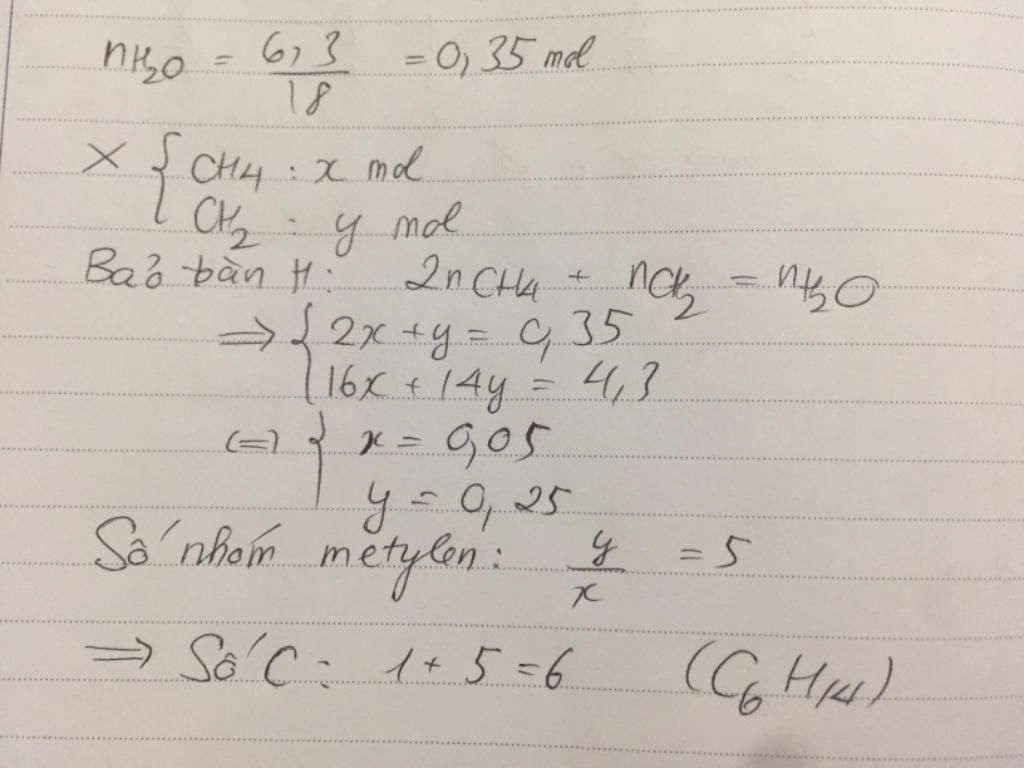 nH₂O = 6,3/18 = 0,35 mol
X { CH4 : x mol
CH₂ : y mol
Bảo toàn H: 2nCH4 + nCH₂ = nH₂O
⇒ { 2x + y = 0,35
16x + 14y = 4,3
(=) { x = 0,05
y = 0,25
Số nhóm metylen: y/x = 5
⇒ Số C: 1 + 5 = 6 (C₆H₁₄)